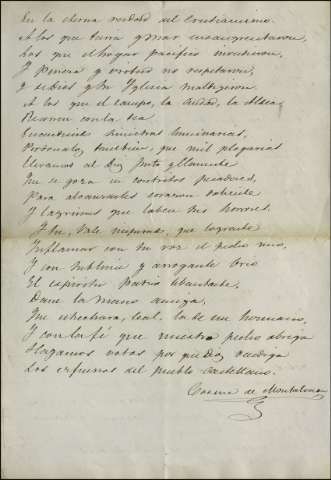 En la eterna verdad del Cristianismo.
A los que tierra y mar ensangrentaron,
Los que el hogar pacífico invadieron,
Y pureza y virtud no respetaron,
Y á Dios y á tu Iglesia maldijeron.
A los que el campo, la ciudad, la Aldea,
con la tea
siniestras luminarias,
Perdónalos, tambien, que mil plegarias
llevamos al Dios justo y clemente
Que se goza en contritos pecadores,
Para alcanzarles corazon
Y lágrimas que laben sus horrores.
Y tu, que lograste
Inflamar con tu voz el pecho mio,
Y con sublime y arrogante brio
El espíritu patrio
Dame la mano amiga,
Que estrechara, leal, la de un hermano,
Y con la fé que nuestro pecho abriga
Hagamos votos por que Dios bendiga
Los esfuerzos del pueblo castellano.
de Montalvan